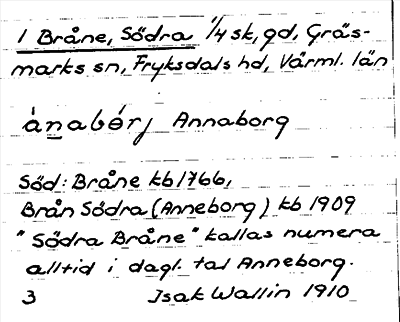 1 Bråne, Södra 1/4 sk, gd, Gräs-
marks sn, Fryksdals hd, Värml. län
ànabórj Annaborg
Söd: Bråne kb 1766,
Brån Södra (Anneborg) kb 1909
"Södra Bråne" kallas numera
alltid i dagl. tal Anneborg.
3 Isak Wallin 1910